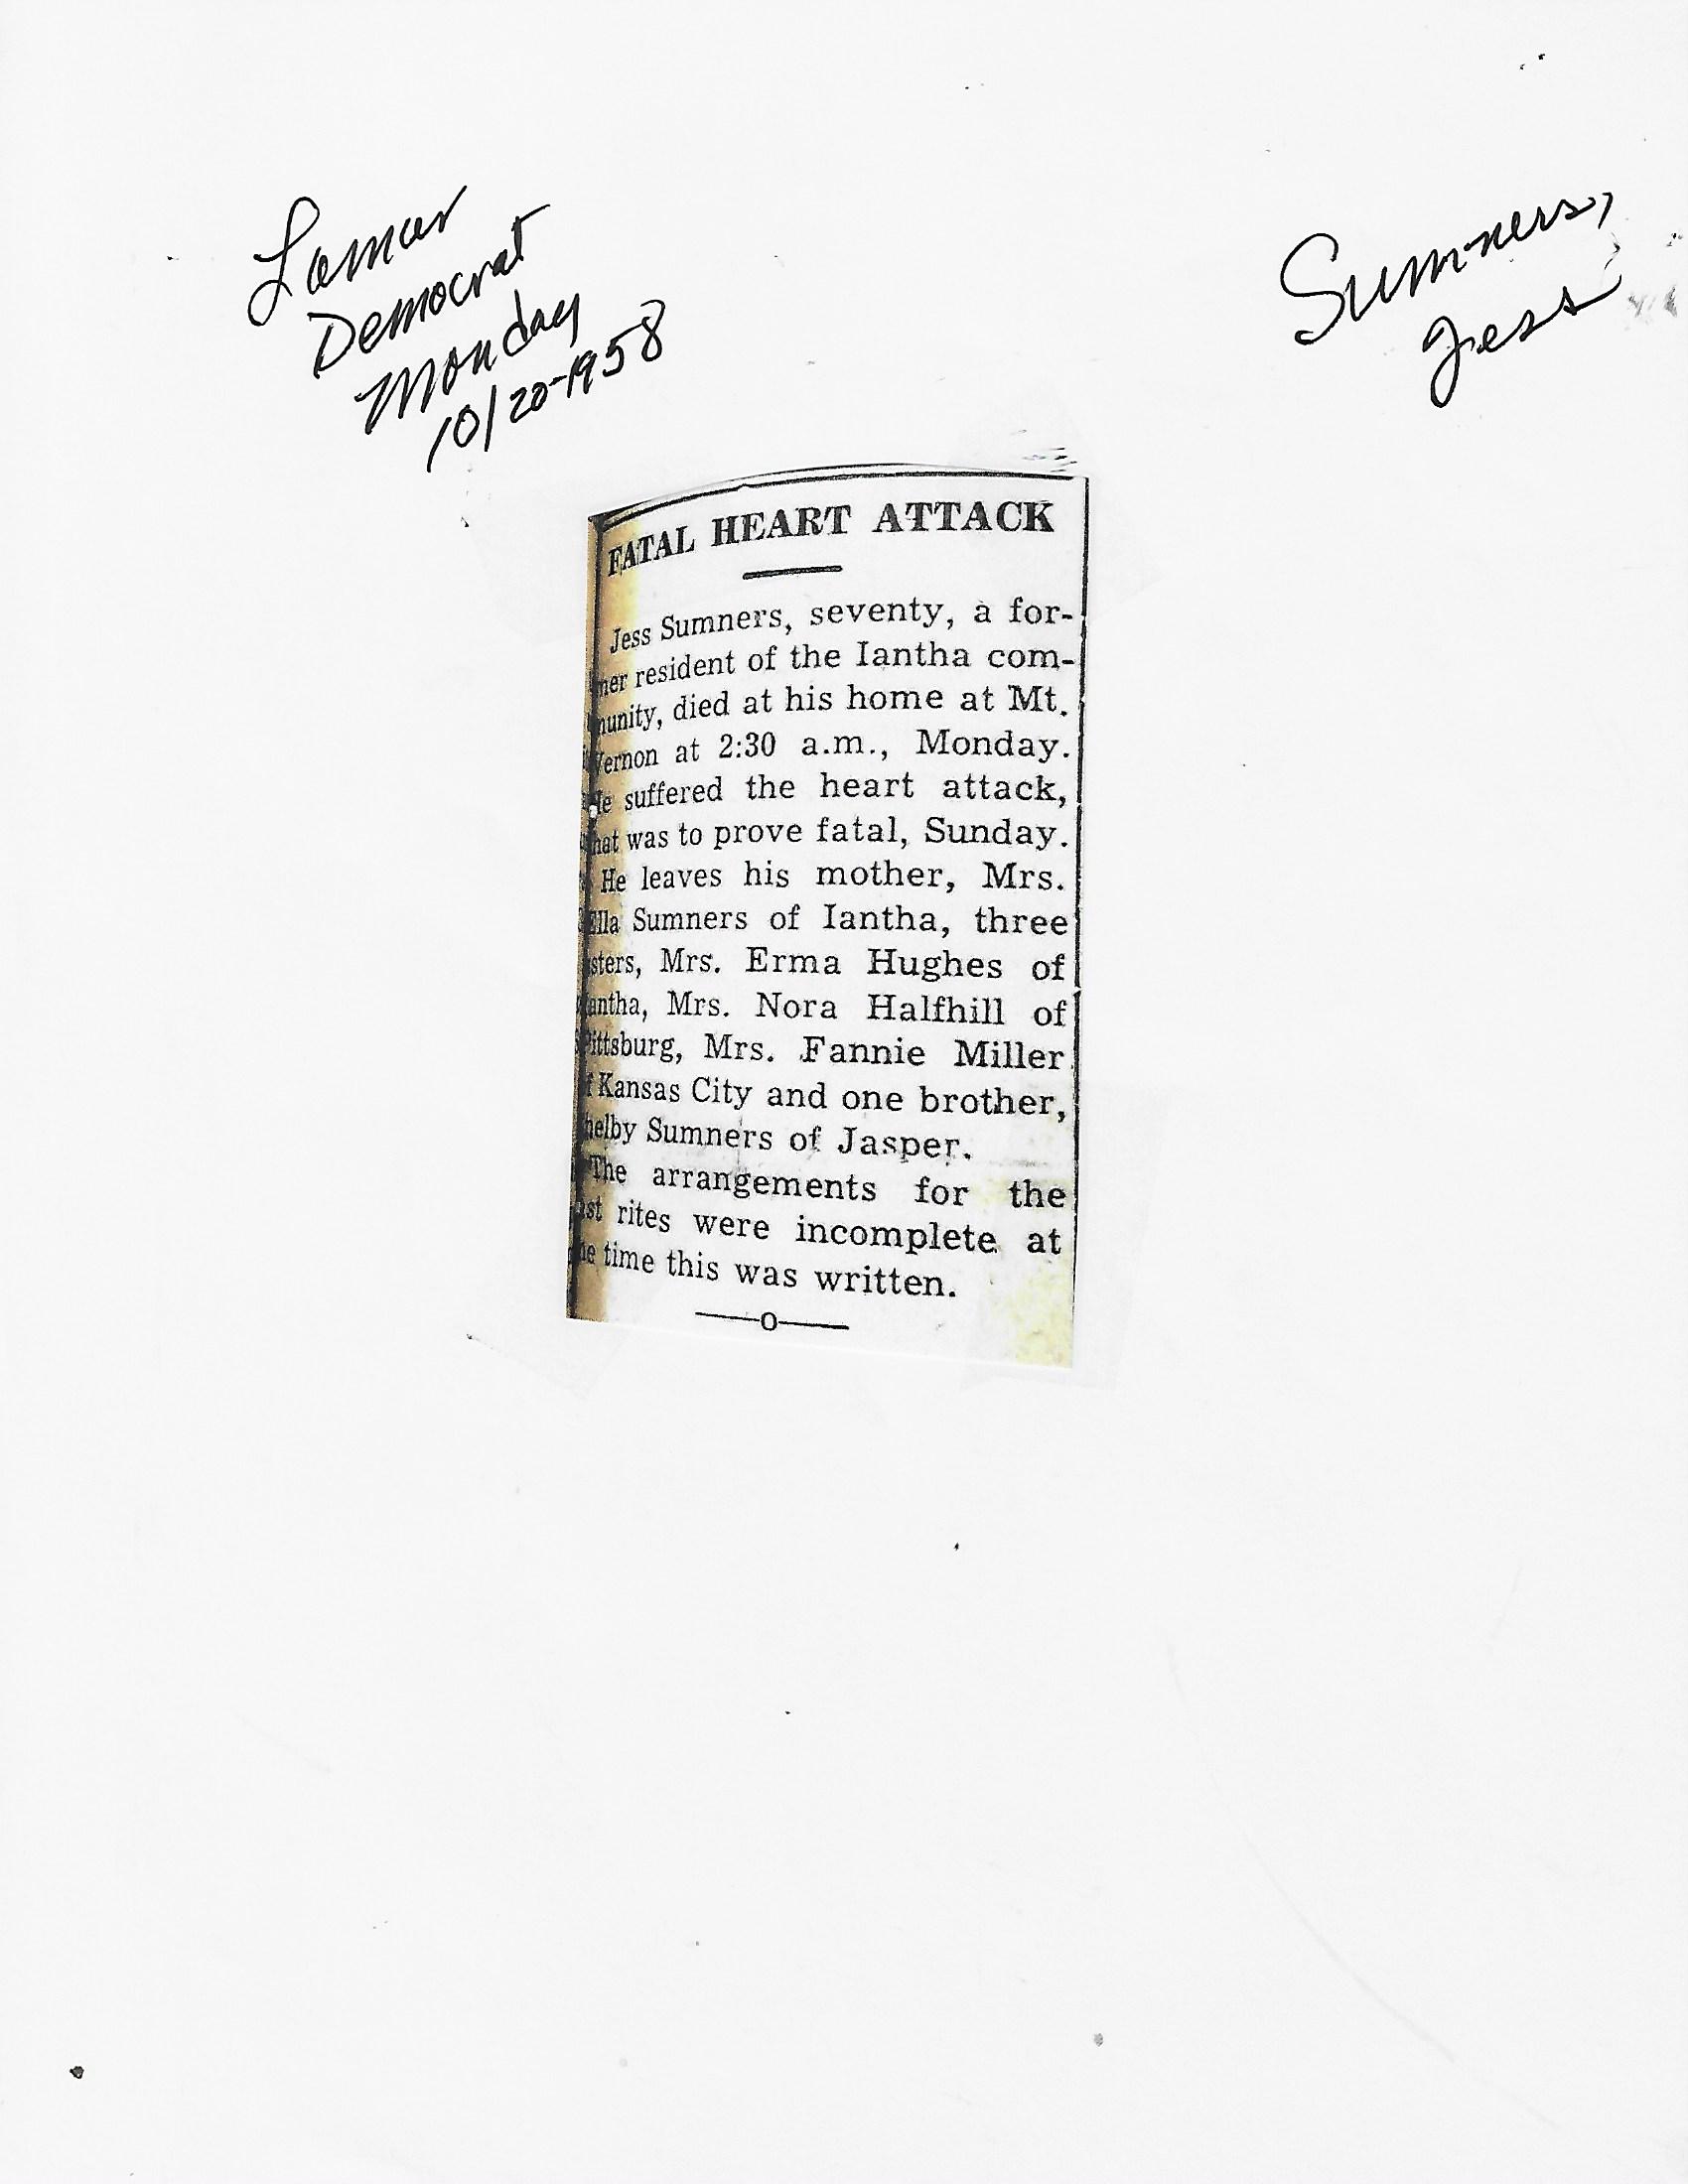 Lamar
Democrat
Monday
10/20-1958
Sumners,
Jess
FATAL HEART ATTACK
Jess Sumners, seventy, a for-
mer resident of the Iantha com-
munity, died at his home at Mt.
Vernon at 2:30 a.m., Monday.
He suffered the heart attack,
hat was to prove fatal, Sunday.
He leaves his mother, Mrs.
Ella Sumners of Iantha, three
sters, Mrs. Erma Hughes of
antha, Mrs. Nora Halfhill of
Pittsburg, Mrs. Fannie Miller
f Kansas City and one brother,
helby Sumners of Jasper.
The arrangements for the
ast rites were incomplete at
he time this was written.
—o—